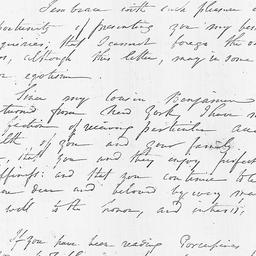 I embrace with such pleasure
portunity of presenting you my bes
quiries, that I cannot forego the
s, although this letter, may in some
or egotism
Since my cousin Benjamin
turned from New York, I have
faction of receiving particular
lth of you and your family
, that you and they enjoy perfect
ppiness: and that you continue to be
dear and beloved by every
well to the honor, and interest,
If you have been reading Porcupine's